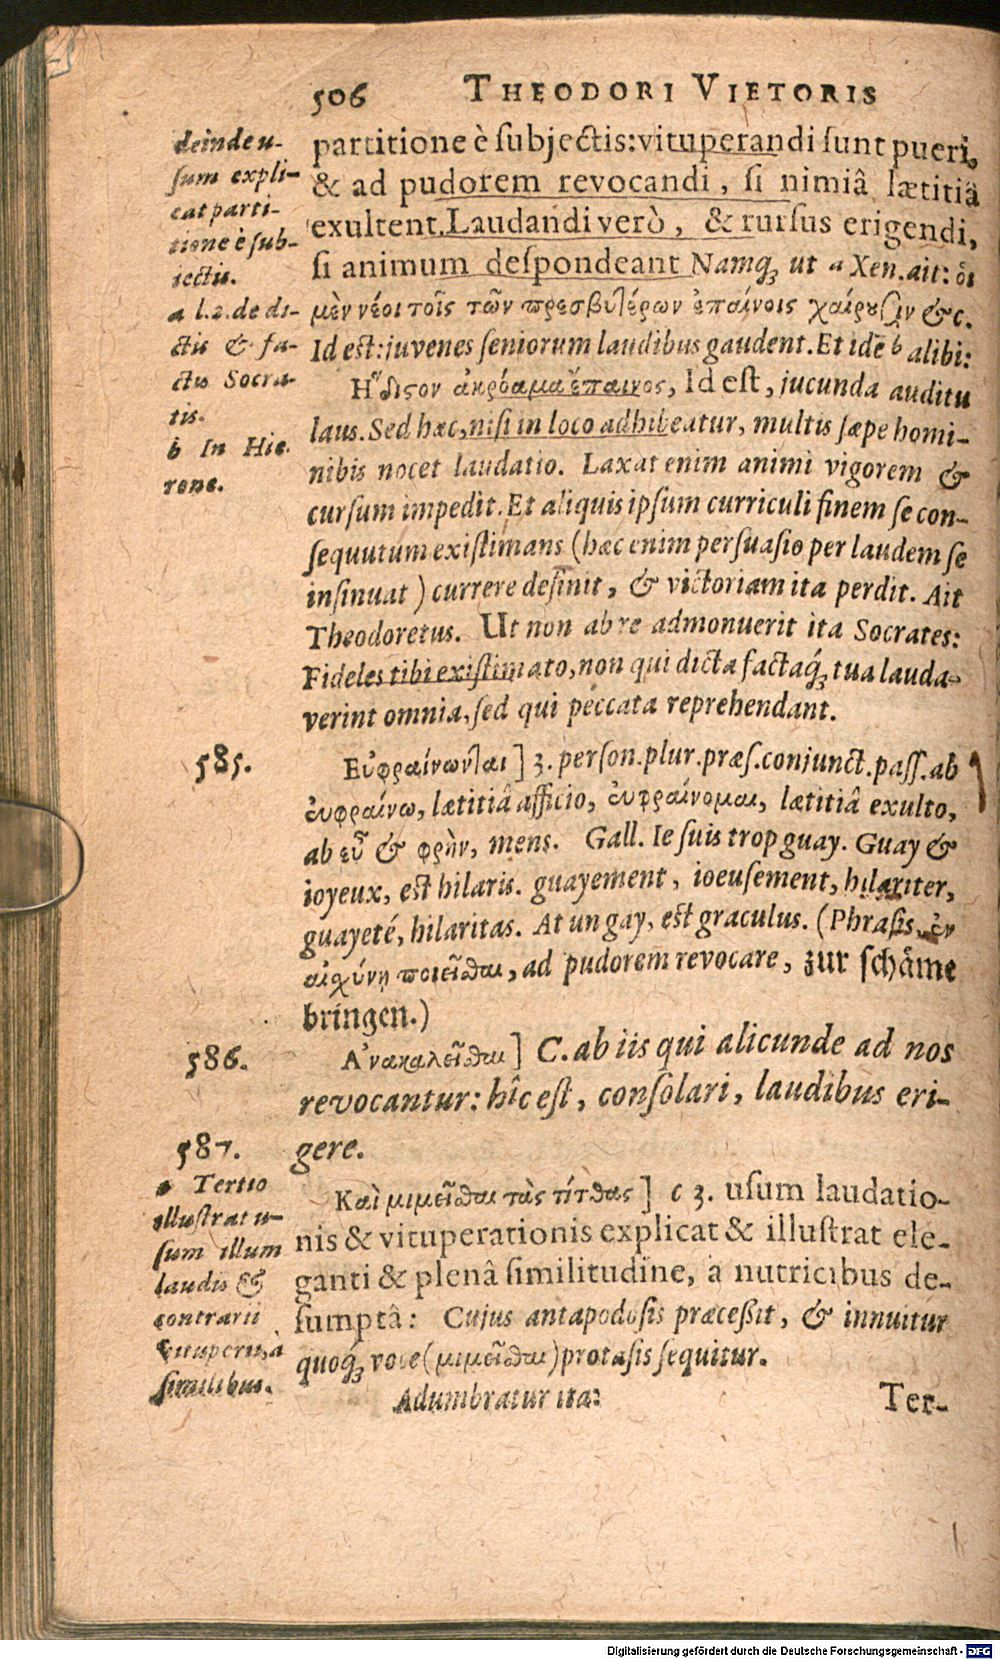 506 THEODORI VIETORIS
deinde u-
sum expli-
cat parti-
tione è sub-
jectis.
a l. 2. de di-
ctis & fa-
ctis Socra-
tis.
b In Hie-
rone.
partitione è subjectis: vituperandi sunt pueri,
& ad pudorem revocandi, si nimiâ lætitiâ
exultent. Laudandi verò, & rursus erigendi,
si animum despondeant Namq; ut a Xen. ait: οἱ
μὲν νέοι τοῖς τῶν πρεσβυτέρων ἐπαίνοις χαίρουσιν &c.
Id est: juvenes seniorum laudibus gaudent. Et idē b alibi:
Ἥδιστον ἀκρόαμα ἔπαινος, Id est, jucunda auditu
laus. Sed hæc, nisi in loco adhibeatur, multis sæpe homi-
nibus nocet laudatio. Laxat enim animi vigorem &
cursum impedit. Et aliquis ipsum curriculi finem se con-
sequutum existimans (hæc enim persuasio per laudem se
insinuat) currere desinit, & victoriam ita perdit. Ait
Theodoretus. Ut non ab re admonuerit ita Socrates:
Fideles tibi existimato, non qui dicta factaq; tua lauda-
verint omnia, sed qui peccata reprehendant.
585.
Εὐφραίνωνται] 3. person. plur. præs. conjunct. pass. ab
εὐφραίνω, lætitiâ afficio, εὐφραίνομαι, lætitiâ exulto,
ab εὖ & φρὴν, mens. Gall. Ie suis trop guay. Guay &
ioyeux, est hilaris. guayement, ioeusement, hilariter,
guayeté, hilaritas. At un gay, est graculus. (Phrasis, ἐν
αἰσχύνῃ ποιεῖσθαι, ad pudorem revocare, zur schåme
bringen.)
586.
Ἀνακαλεῖσθαι] C. ab iis qui alicunde ad nos
revocantur: hîc est, consolari, laudibus eri-
gere.
587.
Tertio
illustrat u-
sum illum
laudis &
contrarii
vituperii, à
similibus.
Καὶ μιμεῖσθαι τὰς τίτθας] c 3. usum laudatio-
nis & vituperationis explicat & illustrat ele-
ganti & plenâ similitudine, a nutricibus de-
sumptâ: Cujus antapodosis præceßit, & innuitur
quoq; voce (μιμεῖσθαι) protasis sequitur.
Adumbratur ita:
Ter-
Digitalisierung gefördert durch die Deutsche Forschungsgemeinschaft - DFG